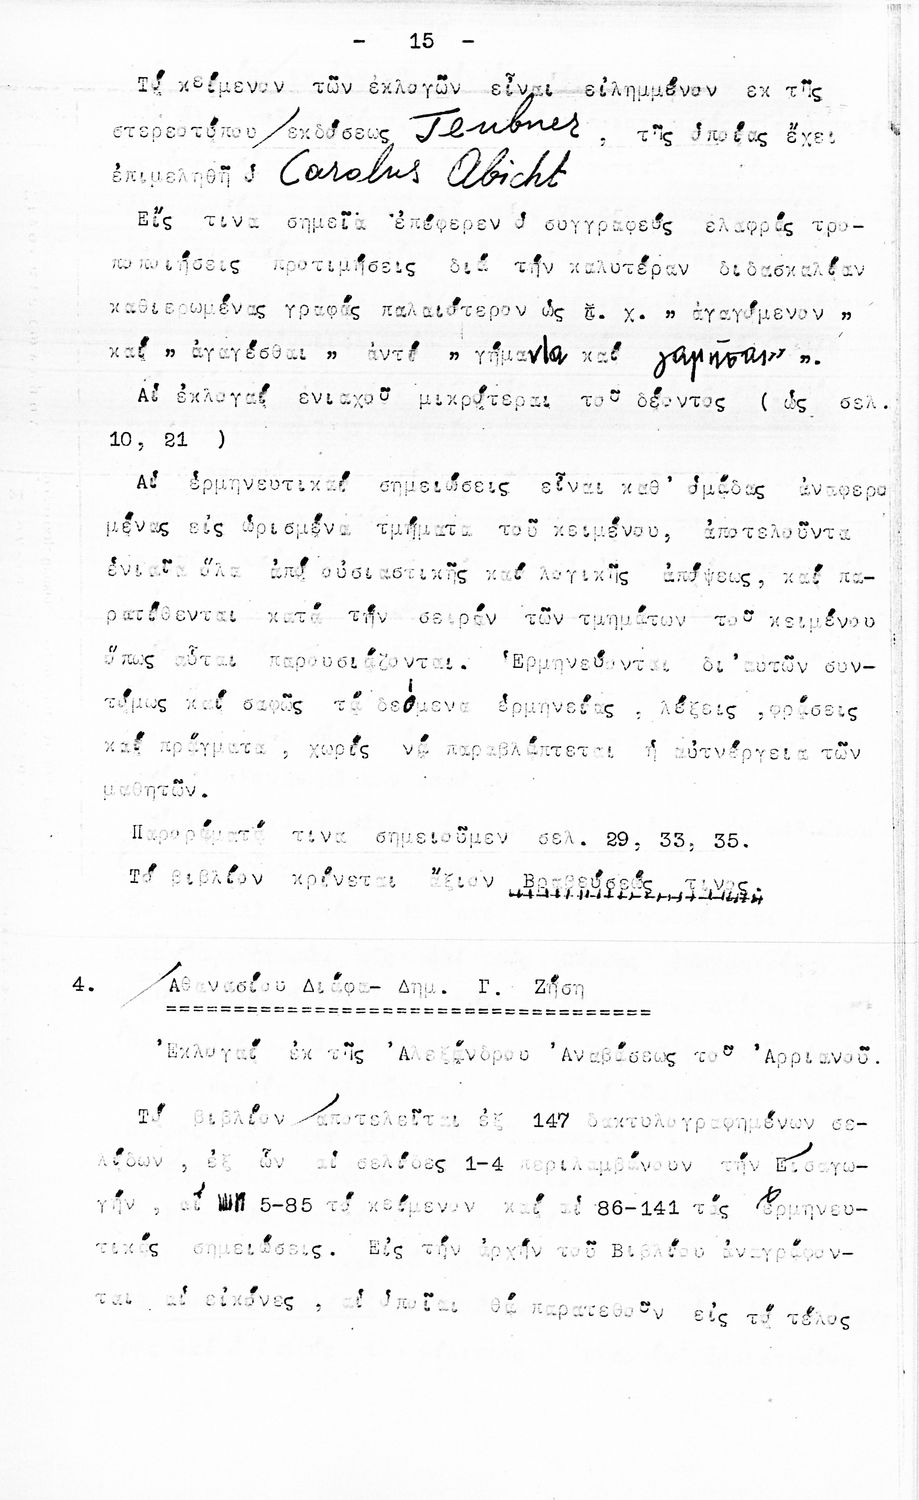 - 15 -
Τό κείμενον τῶν ἐκλογῶν εἶναι εἰλημμένον εκ τῆς
στερεοτύπου εκδόσεως Teubner , τῆς ὁποίας ἔχει
ἐπιμεληθῆ ὁ Carolus Abicht
Εἴς τινα σημεῖα ἐπέφερεν ὁ συγγραφεύς ελαφράς τρο-
ποποιήσεις προτιμήσεις διά τήν καλυτέραν διδασκαλίαν
καθιερωμένας γραφάς παλαιότερον ὡς π. χ. " ἀγαγόμενον "
καί " ἀγαγέσθαι " ἀντί " γήμαντα καί γαμῆσαι" ".
Αἱ ἐκλογαί ἐνιαχοῦ μικρότεραι τοῦ δέοντος ( ὡς σελ.
10, 21 )
Αἱ ἑρμηνευτικαί σημειώσεις εἶναι καθ' ὁμάδας ἀναφερο
μένας εἰς ὡρισμένα τμήματα τοῦ κειμένου, ἀποτελοῦντα
ἑνιαῖα ὅλα ἀπό οὐσιαστικῆς καί λογικῆς ἀπόψεως, καί πα-
ρατίθενται κατά τήν σειράν τῶν τμημάτων τοῦ κειμένου
ὅπως αὗται παρουσιάζονται. Ἑρμηνεύονται δι'αυτῶν συν-
τόμως καί σαφῶς τά δεόμενα ἑρμηνείας , λέξεις ,φράσεις
καί πράγματα , χωρίς νά παραβλάπτεται ἡ αὐτνέργεια τῶν
μαθητῶν.
Παροράματά τινα σημειοῦμεν σελ. 29, 33, 35.
Τό βιβλίον κρίνεται ἄξιον Βραβεύσεώς τινος.
4. Αθανασίου Διάφα- Δημ. Γ. Ζήση
Ἐκλογαί ἐκ τῆς Ἀλεξάνδρου Ἀναβάσεως τοῦ Ἀρριανοῦ.
Τό βιβλίον ἀποτελεῖται ἐξ 147 δακτυλογραφημένων σε-
λίδων , ἐξ ὧν αἱ σελίδες 1-4 περιλαμβάνουν τήν Εἰσαγω-
γήν , αἱ 5-85 τό κείμενον καί αἱ 86-141 τάς ἑρμηνευ-
τικάς σημειώσεις. Εἰς τήν ἀρχήν τοῦ Βιβλίου ἀναγράφον-
ται αἱ εἰκόνες , αἱ ὁποῖαι θά παρατεθοῦν εἰς τό τέλος